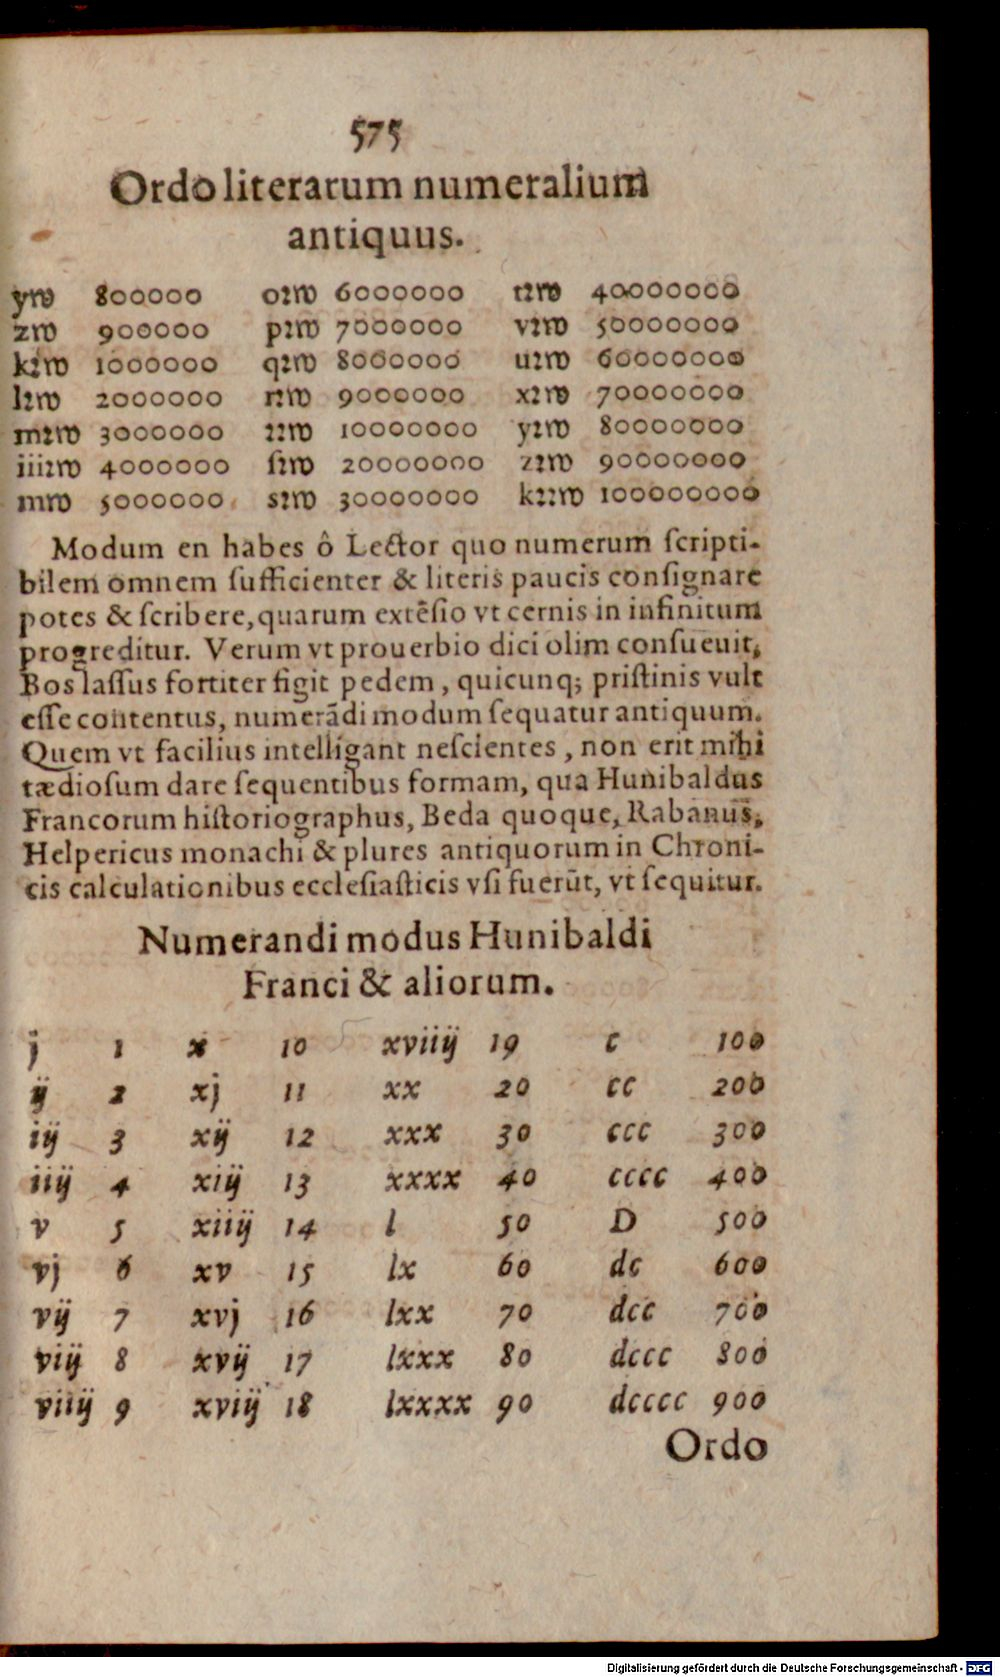 575
Ordo literarum numeralium
antiquus.
yrꝺ 800000 oꝛrꝺ 6000000 tꝛrꝺ 40000000
zrꝺ 900000 pꝛrꝺ 7000000 vꝛrꝺ 50000000
kꝛrꝺ 1000000 qꝛrꝺ 8000000 uꝛrꝺ 60000000
lꝛrꝺ 2000000 rꝛrꝺ 9000000 xꝛrꝺ 70000000
mꝛrꝺ 3000000 ꝛꝛrꝺ 10000000 yꝛrꝺ 80000000
iiiꝛrꝺ 4000000 ſꝛrꝺ 20000000 zꝛrꝺ 90000000
mrꝺ 5000000 sꝛrꝺ 30000000 kꝛꝛrꝺ 100000000
Modum en habes ô Lector quo numerum ſcripti-
bilem omnem ſufficienter & literis paucis conſignare
potes & ſcribere, quarum extẽſio vt cernis in infinitum
progreditur. Verum vt prouerbio dici olim conſueuit,
Bos laſſus fortiter figit pedem, quicunq; priſtinis vult
eſſe contentus, numerãdi modum ſequatur antiquum.
Quem vt facilius intelligant neſcientes, non erit mihi
tædioſum dare ſequentibus formam, qua Hunibaldus
Francorum hiſtoriographus, Beda quoque, Rabanus,
Helpericus monachi & plures antiquorum in Chroni-
cis calculationibus eccleſiaſticis vſi fuerūt, vt ſequitur.
Numerandi modus Hunibaldi
Franci & aliorum.
j 1 x 10 xviiij 19 c 100
ij 2 xj 11 xx 20 cc 200
iij 3 xij 12 xxx 30 ccc 300
iiij 4 xiij 13 xxxx 40 cccc 400
v 5 xiiij 14 l 50 D 500
vj 6 xv 15 lx 60 dc 600
vij 7 xvj 16 lxx 70 dcc 700
viij 8 xvij 17 lxxx 80 dccc 800
viiij 9 xviij 18 lxxxx 90 dcccc 900
Ordo
Digitalisierung gefördert durch die Deutsche Forschungsgemeinschaft - DFG